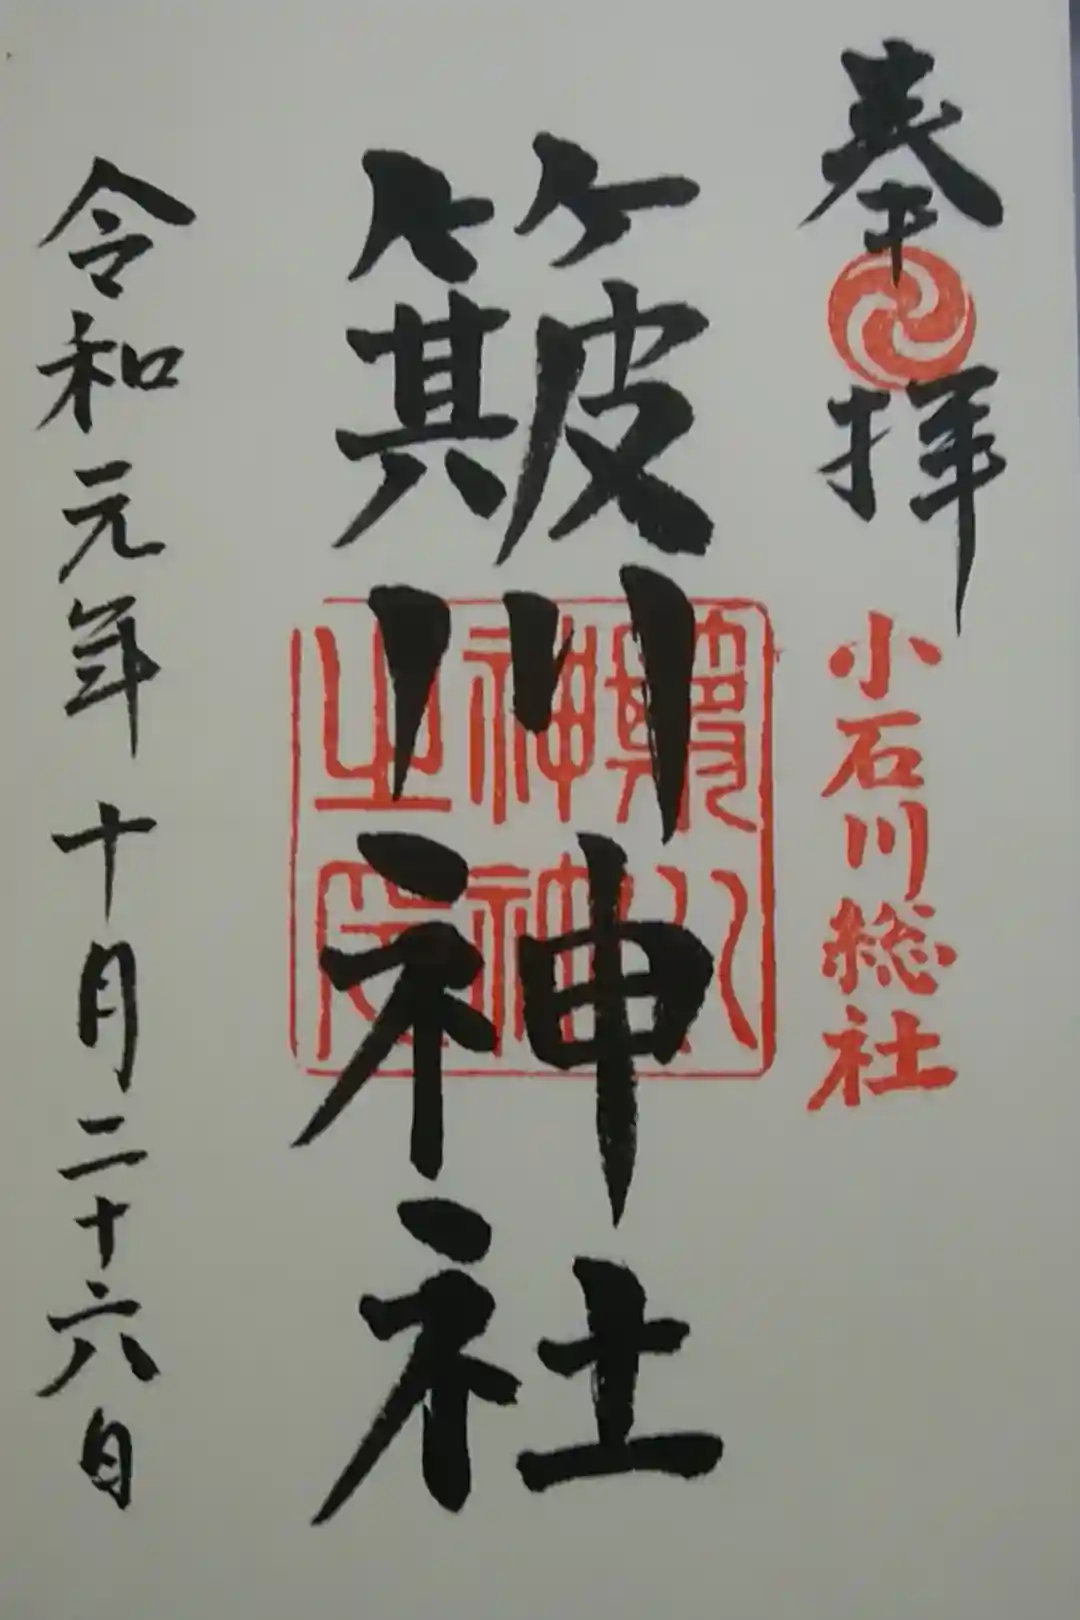 奉拝
小石川総社
簸川神社
簸川
神神
之印
令和元年十月二十六日